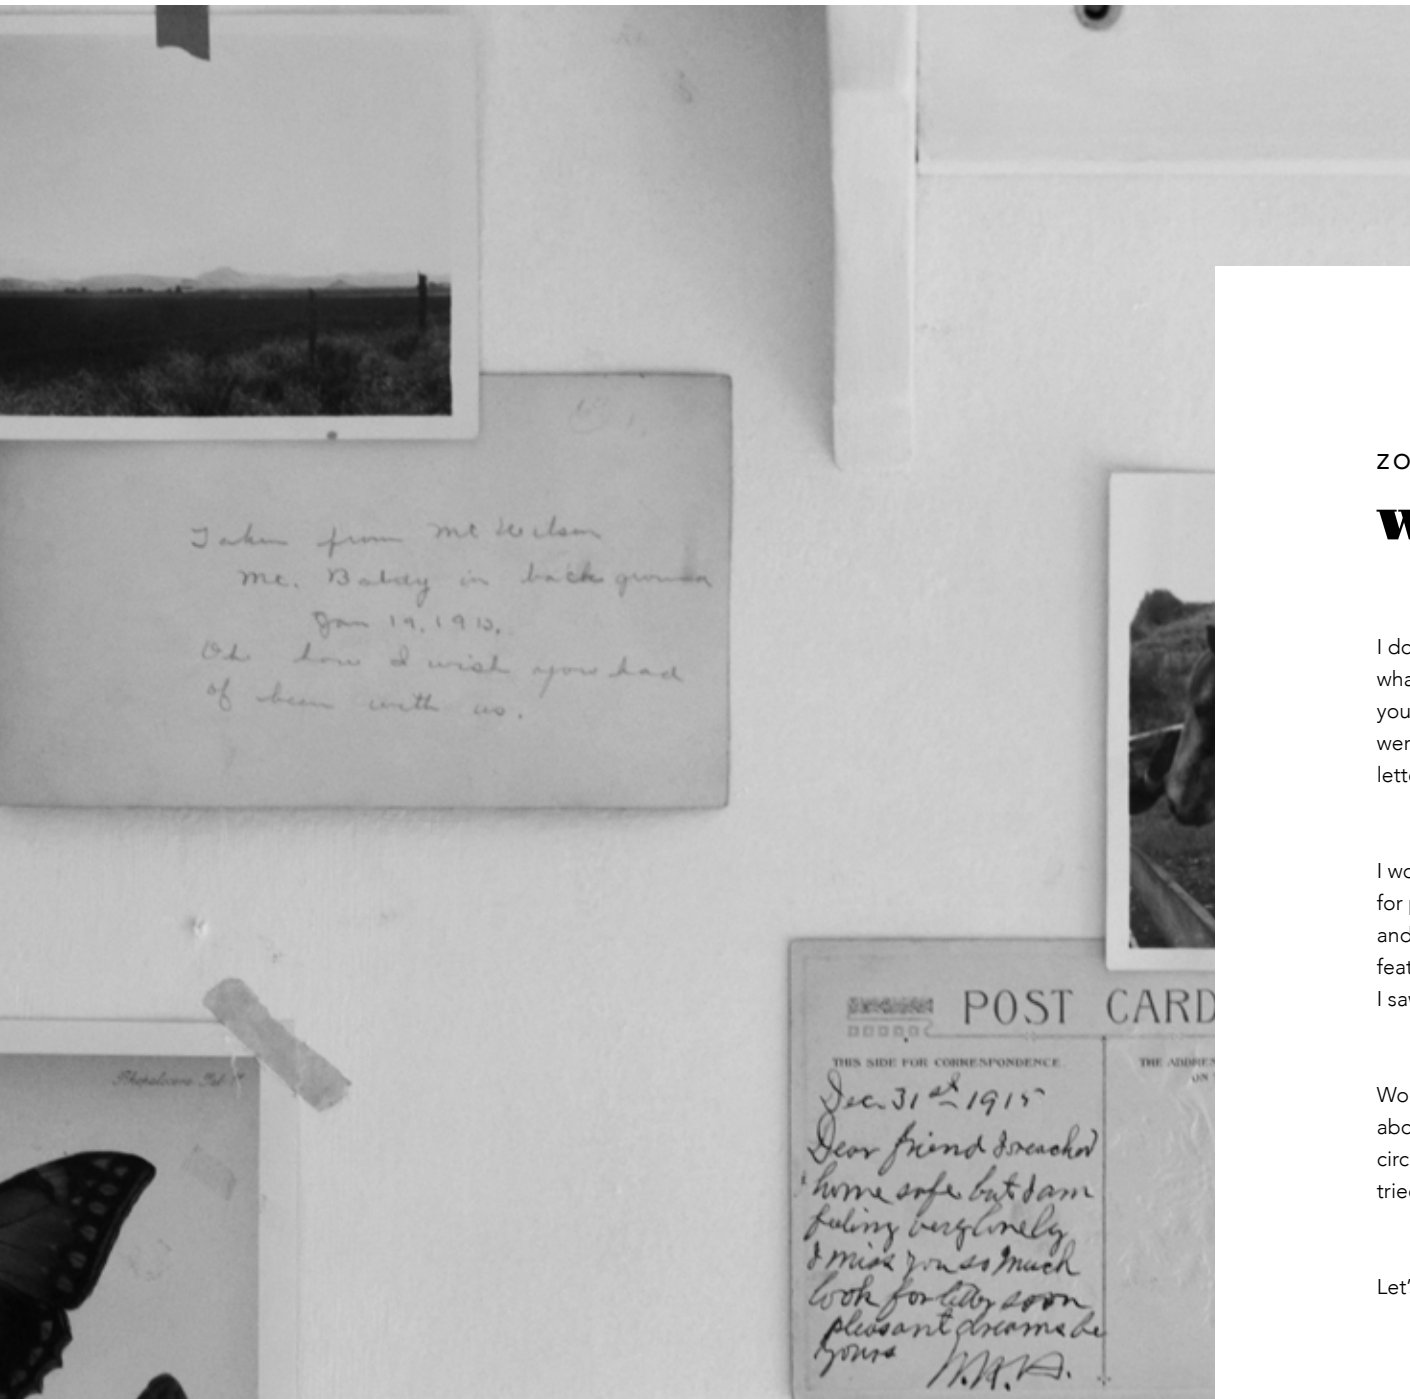 Taken from Mt Wilson
Mt. Baldy in back ground
Jan 19, 1913.
Oh how I wish you had
of been with us.
POST CARD
THIS SIDE FOR CORRESPONDENCE.
THE ADDRES
ON
Dec 31st 1915
Dear friend I reached
home safe but I am
feeling very lonely
I miss you so much
look for letter soon
pleasant dreams be
yours W.A.H.
ZO
W
I do
wha
you
wer
lett
I wo
for p
and
feat
I sav
Wo
abo
circ
trie
Let'